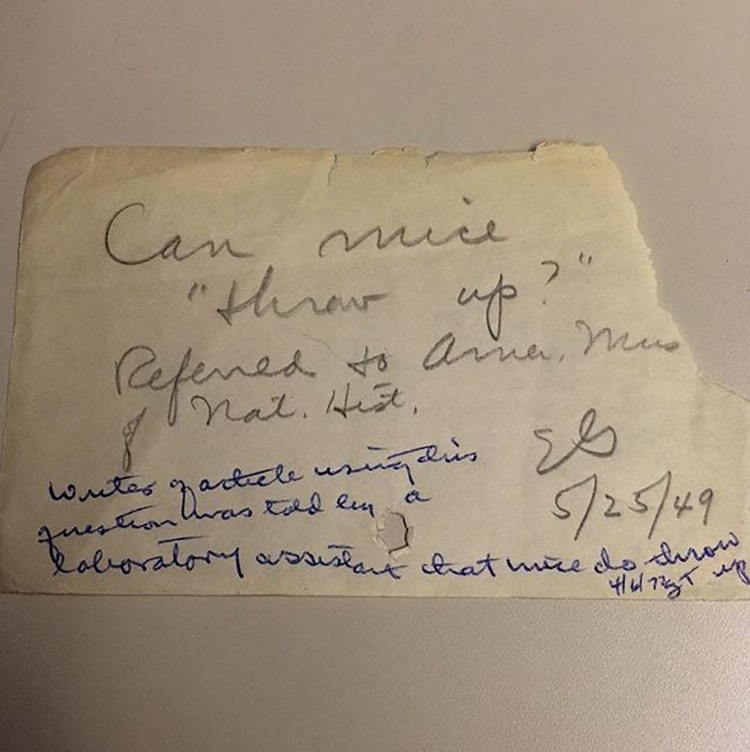 Can mice
"throw up?"
Referred to Amer. Mus
of Nat. Hist.
5/25/49
writer of article using this
question was told by a
laboratory assistant that mice do throw
up